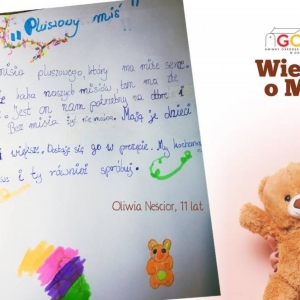 "Pluszowy miś"
misia pluszowego, który ma miłe serce.
naszych misiów, ten ma de
Jest on nam potrzebny na dobre i
Bez misia żyć nie można. Mają je dzieci
i większe. Dostaję się go w prezęcie. My kochamy
i ty również spróbuj.
Oliwia Nescior, 11 lat
GO
Wie
o M